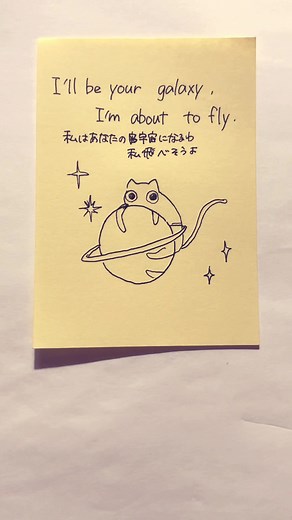 I'll be your galaxy,
I'm about to fly.
私はあなたの宇宙になるわ
私飛べそうよ